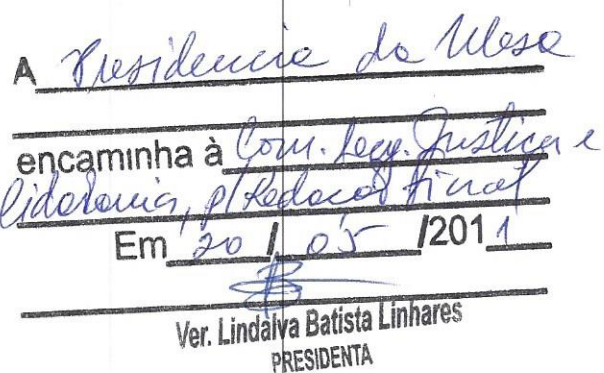 A Presidencia da Mesa
encaminha à Com. Leg. Justiça e
Cidadania, p/ Redação Final
Em 20 / 05 /2011
Ver. Lindalva Batista Linhares
PRESIDENTA